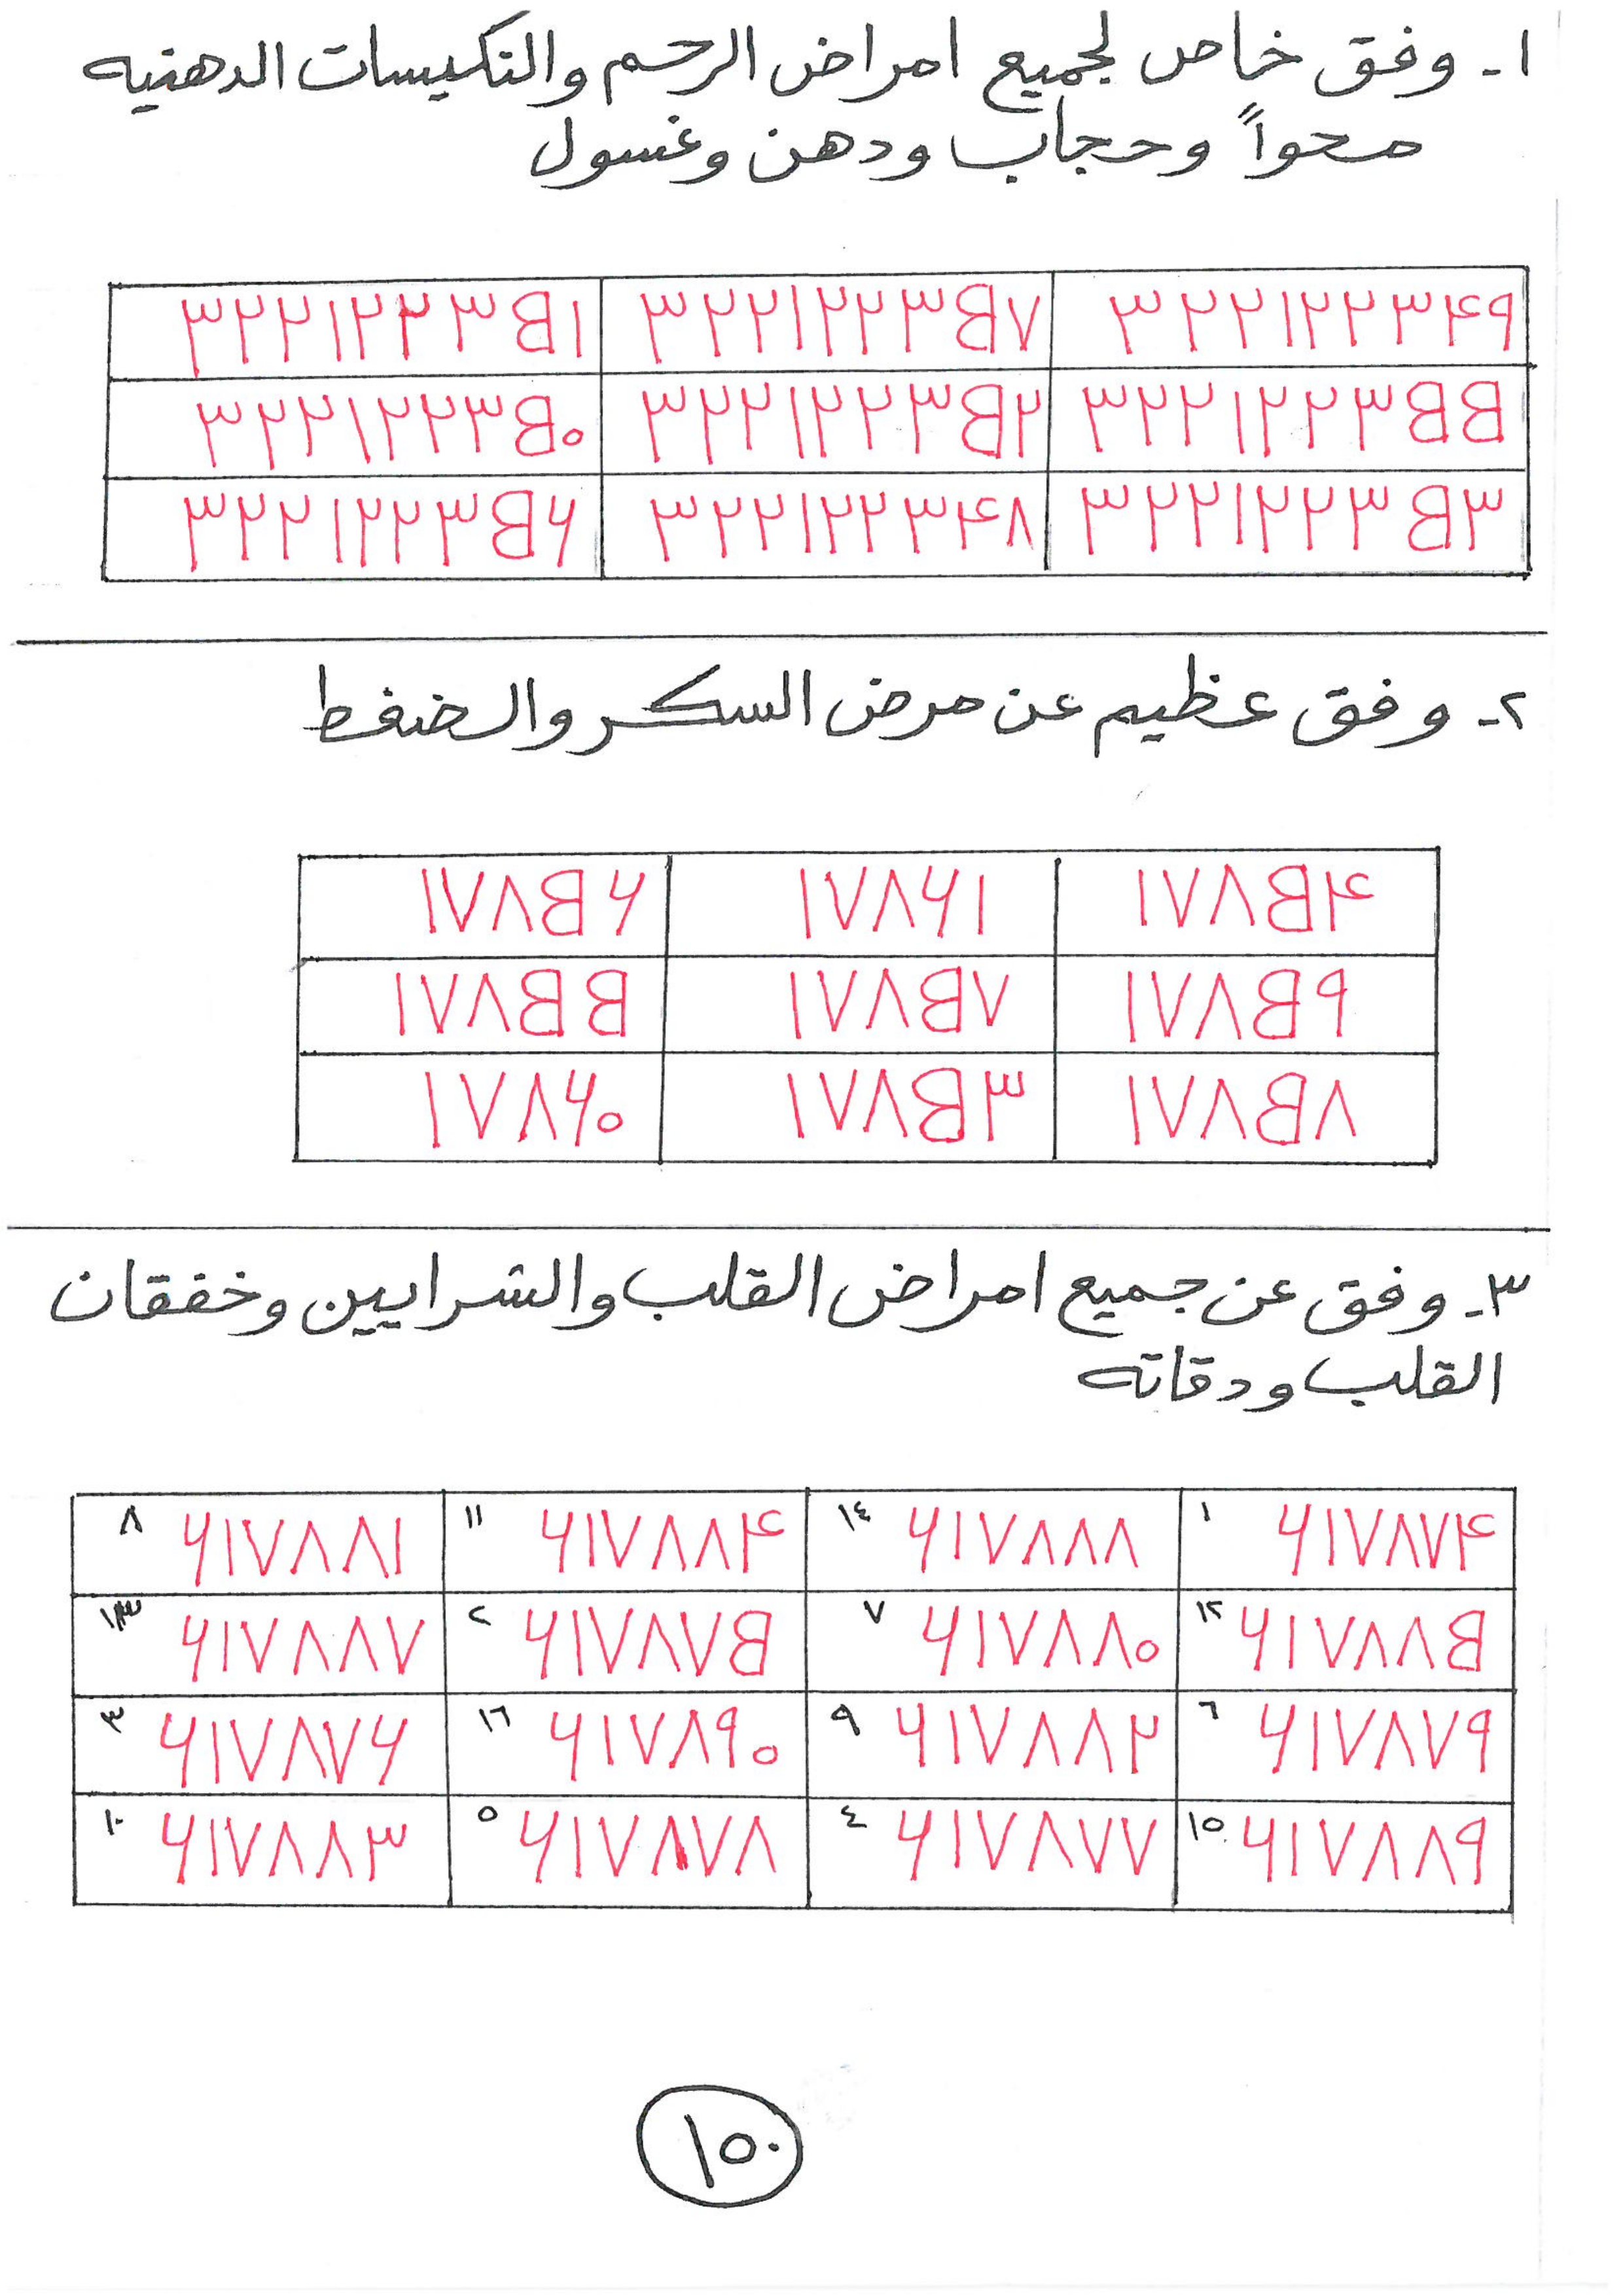 ١- وفق خاص لجميع امراض الرحم والتكيسات الدهنيه
محواً وحجاب ودهن وغسول
٣٢٢١٢٢٣٤٩ ٣٢٢١٢٢٣٥٨ ٣٢٢١٢٢٣٥١
٣٢٢١٢٢٣٥٥ ٣٢٢١٢٢٣٥٢ ٣٢٢١٢٢٣٥٠
٣٢٢١٢٢٣٥٣ ٣٢٢١٢٢٣٤٧ ٣٢٢١٢٢٣٥٦
٢- وفق عظيم عن مرض السكر والضغط
١٧٨٥٤ ١٧٨٦١ ١٧٨٥٦
١٧٨٥٩ ١٧٨٥٧ ١٧٨٥٥
١٧٨٥٨ ١٧٨٥٣ ١٧٨٦٠
٣- وفق عن جميع امراض القلب والشرايين وخفقان
القلب ودقاته
١ ٦١٧٨٧٤ ١٤ ٦١٧٨٨٨ ١١ ٦١٧٨٨٤ ٨ ٦١٧٨٨١
١٢ ٦١٧٨٨٥ ٧ ٦١٧٨٨٠ ٢ ٦١٧٨٧٥ ١٣ ٦١٧٨٨٧
٦ ٦١٧٨٧٩ ٩ ٦١٧٨٨٢ ١٦ ٦١٧٨٩٠ ٣ ٦١٧٨٧٦
١٥ ٦١٧٨٨٩ ٤ ٦١٧٨٧٧ ٥ ٦١٧٨٧٨ ١٠ ٦١٧٨٨٣
١٥٠